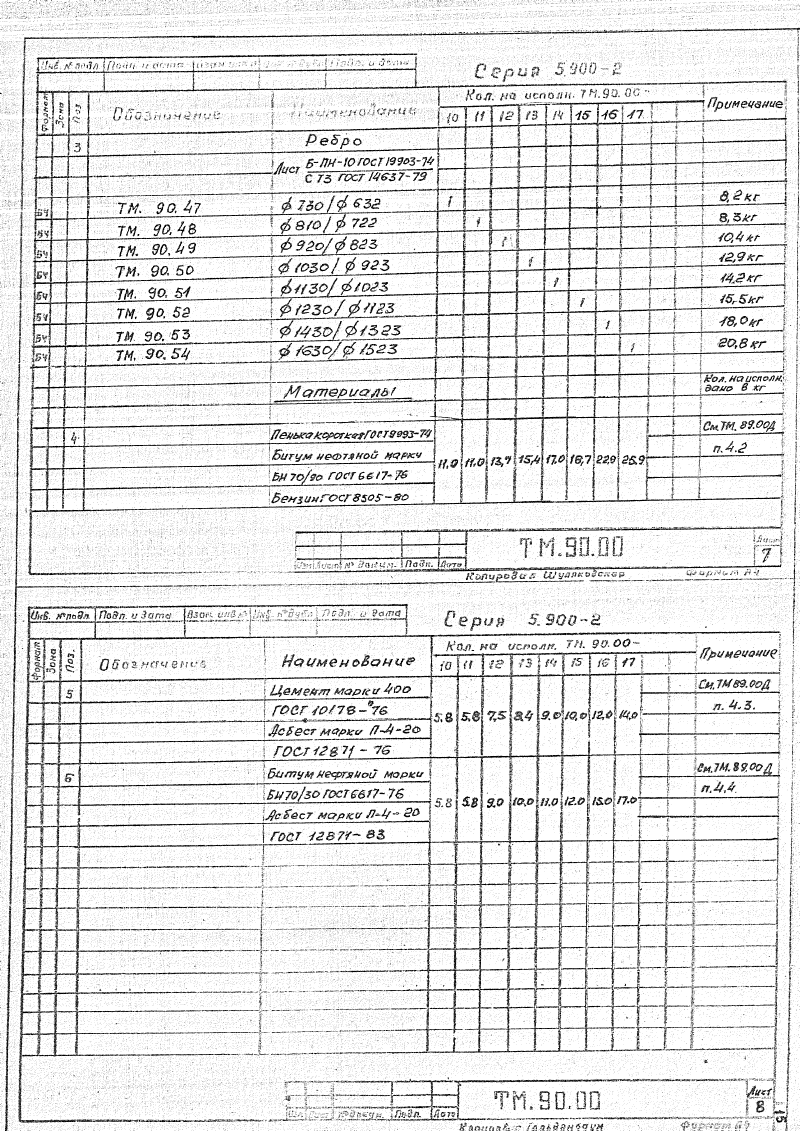 Инв. № подл. Подп. и дата Взам. инв. № Инв. № дубл. Подп. и дата
Серия 5.900-2
Формат Зона Поз. Обозначение Наименование Кол. на исполн. ТМ.90.00- Примечание
10 11 12 13 14 15 16 17
3 Ребро
Лист Б-ПН-10 ГОСТ 19903-74
С т3 ГОСТ 14637-79
БЧ ТМ. 90.47 ϕ 730/ϕ 632 1 8,2 кг
БЧ ТМ. 90.48 ϕ 810/ϕ 722 1 8,3 кг
БЧ ТМ. 90.49 ϕ 920/ϕ 823 1 10,4 кг
БЧ ТМ. 90.50 ϕ 1030/ϕ 923 1 12,9 кг
БЧ ТМ. 90.51 ϕ 1130/ϕ 1023 1 14,2 кг
БЧ ТМ. 90.52 ϕ 1230/ϕ 1123 1 15,5 кг
БЧ ТМ. 90.53 ϕ 1430/ϕ 1323 1 18,0 кг
БЧ ТМ. 90.54 ϕ 1630/ϕ 1523 1 20,8 кг
Материалы Кол. на исполн.
дано в кг
4 Пенька короткая ГОСТ 9993-74 См. ТМ. 89.00Д
Битум нефтяной марки п. 4.2
11,0 11,0 13,7 15,4 17,0 18,7 22,9 25,9
БН 70/90 ГОСТ 6617-76
Бензин ГОСТ 8505-80
ТМ.90.00 Лист
7
Изм. Лист № докум. Подп. Дата
Копировал Формат А4
Инв. № подл. Подп. и дата Взам. инв. № Инв. № дубл. Подп. и дата
Серия 5.900-2
Формат Зона Поз. Обозначение Наименование Кол. на исполн. ТМ. 90.00- Примечание
10 11 12 13 14 15 16 17
5 Цемент марки 400 См. ТМ 89.00Д
ГОСТ 10178-76 п. 4.3.
5.8 5.8 7,5 8,4 9.0 10,0 12,0 14,0
Асбест марки П-4-20
ГОСТ 12871-76
6 Битум нефтяной марки См. ТМ. 89.00Д
БН 70/30 ГОСТ 6617-76 п. 4.4
5.8 5.8 9.0 10.0 11.0 12.0 15.0 17.0
Асбест марки П-4-20
ГОСТ 12871-83
ТМ.90.00 Лист
8
№ докум. Подп. Дата
15
Формат